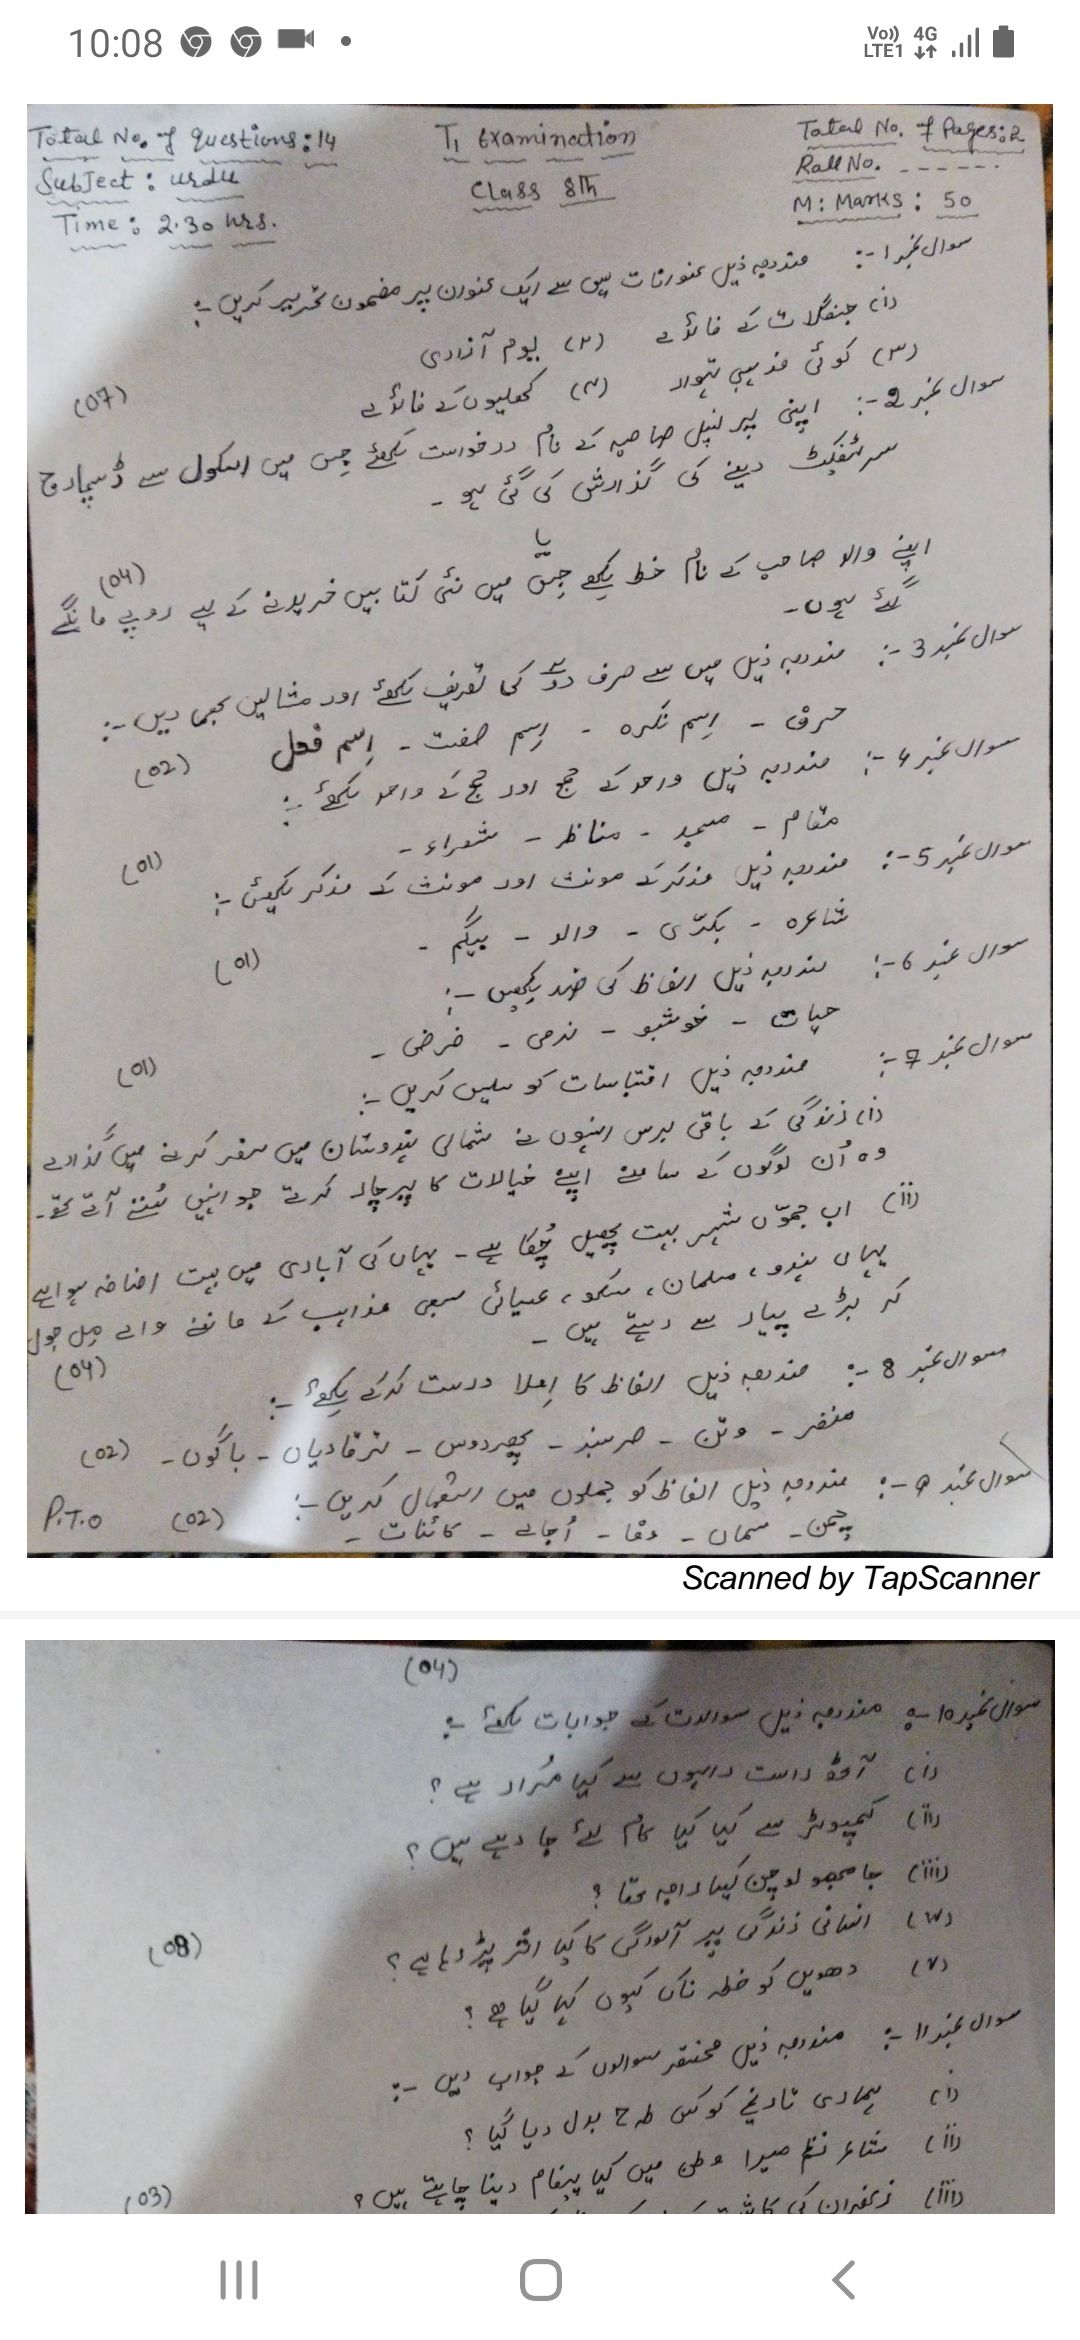 10:08
Vo)) 4G
LTE1
Total No. of Questions: 14
T1 Examination
Total No. of Pages: 2
Subject: urdu
Class 8th
Roll No. ------
Time: 2.30 hrs.
M: Marks: 50
سوال نمبر 1:- مندرجہ ذیل عنوانات میں سے ایک عنوان پر مضمون تحریر کریں :-
(۱) جنگلات کے فائدے (۲) یوم آزادی
(۳) کوئی مذہبی تہوار (۴) کھیلوں کے فائدے (07)
سوال نمبر 2:- اپنی پرنسپل صاحبہ کے نام درخواست لکھئے جس میں اسکول سے ڈسچارج
سرٹیفکیٹ دینے کی گذارش کی گئی ہو -
یا
اپنے والد صاحب کے نام خط لکھے جس میں نئی کتابیں خریدنے کے لیے روپے مانگے (04)
گئے ہوں-
سوال نمبر 3:- مندرجہ ذیل میں سے صرف دو کی تعریف لکھئے اور مثالیں بھی دیں :-
حرف - اسم نکرہ - اسم صفت - اسم فعل (02)
سوال نمبر 4:- مندرجہ ذیل واحد کے جمع اور جمع کے واحد لکھئے :-
مقام - مسجد - مناظر - شعراء - (01)
سوال نمبر 5:- مندرجہ ذیل مذکر کے مونث اور مونث کے مذکر لکھئں :-
شاعرہ - بکری - والد - بیگم - (01)
سوال نمبر 6:- مندرجہ ذیل الفاظ کی ضد لکھیں :-
حیات - خوشبو - نرمی - فرضی - (01)
سوال نمبر 7:- مندرجہ ذیل اقتباسات کو سلیس کریں :-
(i) زندگی کے باقی برس انہوں نے شمالی ہندوستان میں سفر کرنے میں گذارے
وہ اُن لوگوں کے سامنے اپنے خیالات کا پرچار کرتے جو انہیں سُننے آتے تھے-
(ii) اب جموّں شہر بہت پھیل چُکا ہے - یہاں کی آبادی میں بہت اضافہ ہوا ہے
یہاں ہندو، مسلمان، سکھ، عیسائی سبھی مذاہب کے ماننے والے مِل جول
کر بڑے پیار سے رہتے ہیں - (04)
سوال نمبر 8:- مندرجہ ذیل الفاظ کا اِملا درست کرکے لکھئے :-
منفر - وتن - صربند - پھردوس - ترقادیاں - باگوں - (02)
سوال نمبر 9:- مندرجہ ذیل الفاظ کو جملوں میں استعمال کریں :- (02)
P.T.O
چمن - سماں - وفا - اُجالے - کائنات -
Scanned by TapScanner
(04)
سوال نمبر 10:- مندرجہ ذیل سوالات کے جوابات لکھئے :-
(i) داست داہوں سے کیا مُراد ہے ؟
(ii) کمپیوٹر سے کیا کیا کام لئے جا رہے ہیں ؟
(iii) جامبھو لوچن کیسا راجہ تھا ؟
(iv) انسانی زندگی پر آلودگی کا کیا اثر پڑ رہا ہے ؟ (08)
(v) دھویں کو خطرناک کیوں کہا گیا ہے ؟
سوال نمبر 11:- مندرجہ ذیل مختصر سوالوں کے جواب دیں :-
(i) ہماری تاریخ کو کس طرح بدل دیا گیا ؟
(ii) شاعر نظم میرا وطن میں کیا پیغام دینا چاہتے ہیں ؟ (03)
(iii) زعفران کی کاشت